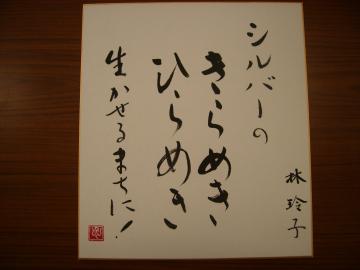 シルバーの
きらめき
ひらめき
生かせるまちに!
林玲子